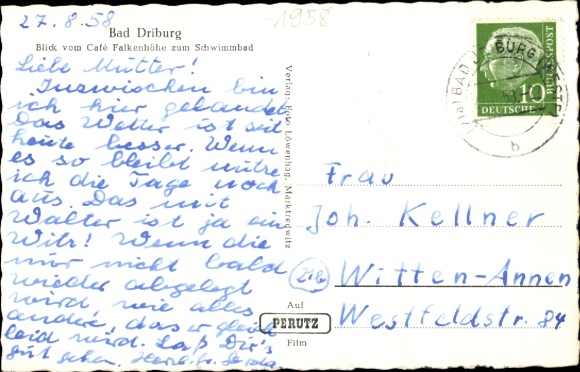 27.8.58
1958
Bad Driburg
Blick vom Café Falkenhöhe zum Schwimmbad
Liebe Mutter!
Inzwischen bin
ich hier gelandet
Das Wetter ist seit
heute besser. Wenn
es so bleibt nutze
ich die Tage noch
aus. Das mit
Walter ist ja ein
Witz! Wenn die
nur nicht bald
wieder abgelegt
wird wie alles
andere, das er gleich
leid wird. Laß Dir's
gut gehen. Herzl. Gr.
Verlag: Foto Löwenhag, Marktredwitz
Auf
PERUTZ
Film
10
DEUTSCHE
BUNDESPOST
BAD
BURG
b
Frau
Joh. Kellner
(21b) Witten-Annen
Westfeldstr. 84